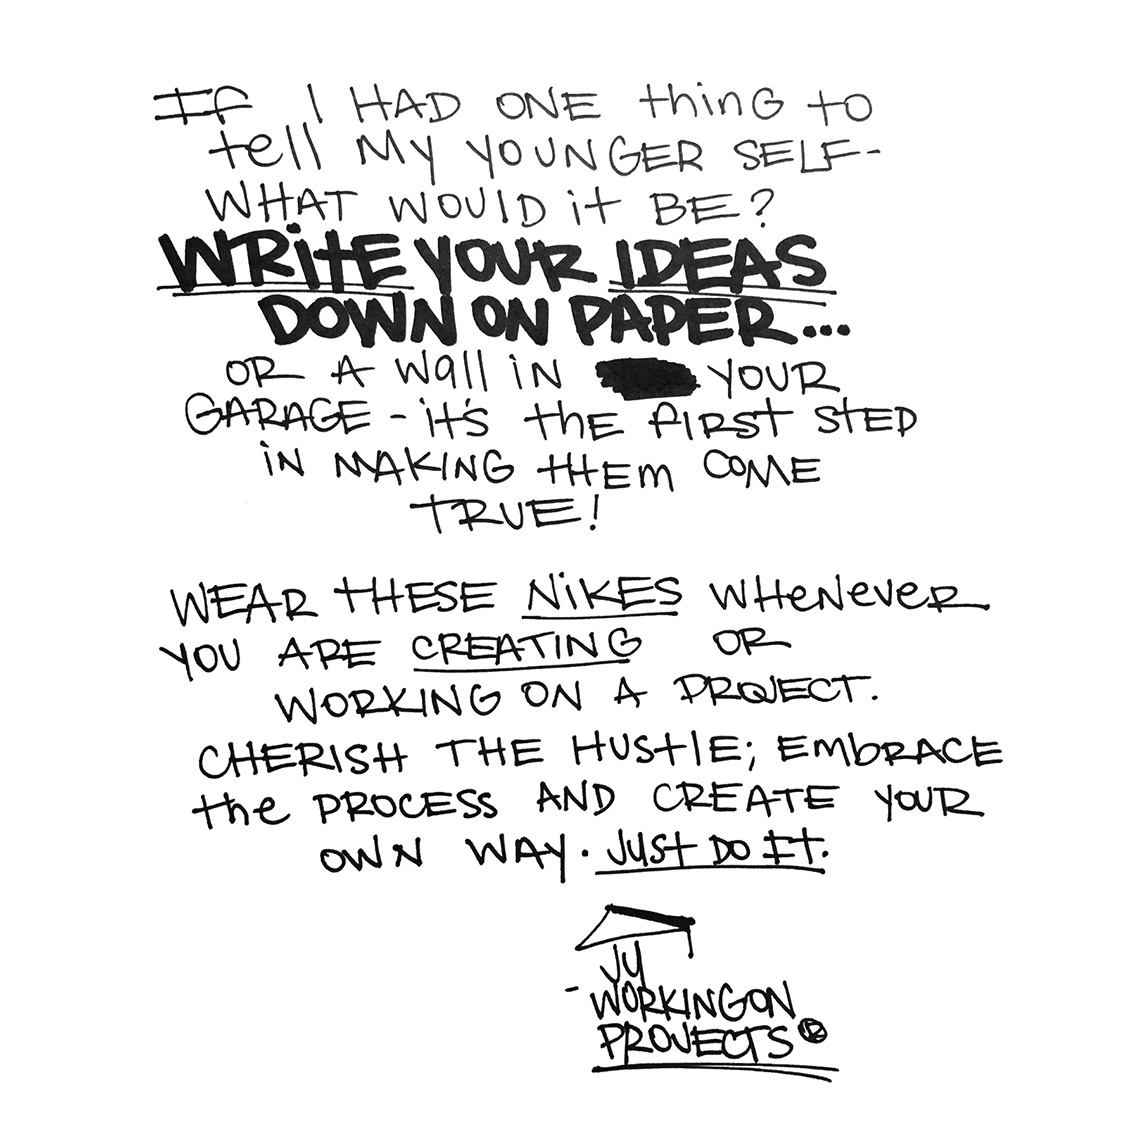 If I HAD ONE thing to
tell MY YOUNGER SELF-
WHAT WOUlD it BE?
WRITE YOUR IDEAS
DOWN ON PAPER...
OR A Wall iN YOUR
GARAGE - it's the fiRST STEP
iN MAKING THEM COME
TRUE!
WEAR THESE NiKES WHENever
YOU ARE CREATING OR
WORKING ON A PROJECT.
CHERISH THE HUSTlE; EmbRACE
the PROCESS AND CREATE YOUR
OWN WAY. JUST DO IT.
JU
- WORKINGON
PROJECTS